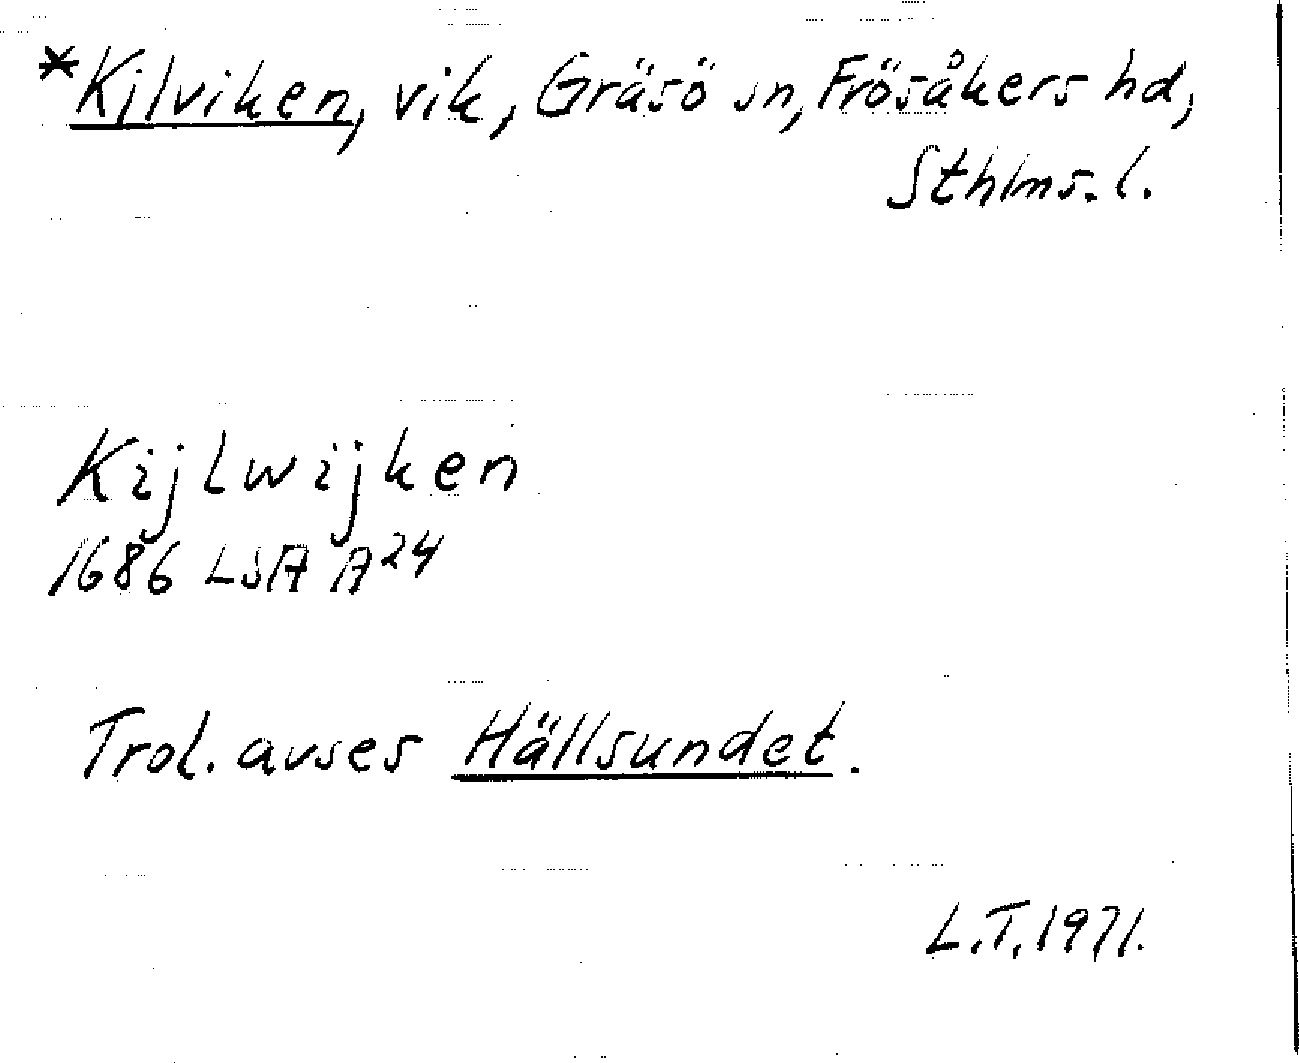 *Kilviken, vik, Gräsö sn, Frösåkers hd,
Sthlms. l.
Kijlwijken
1686 LSA A24
Trol. avses Hällsundet.
L.T. 1971.